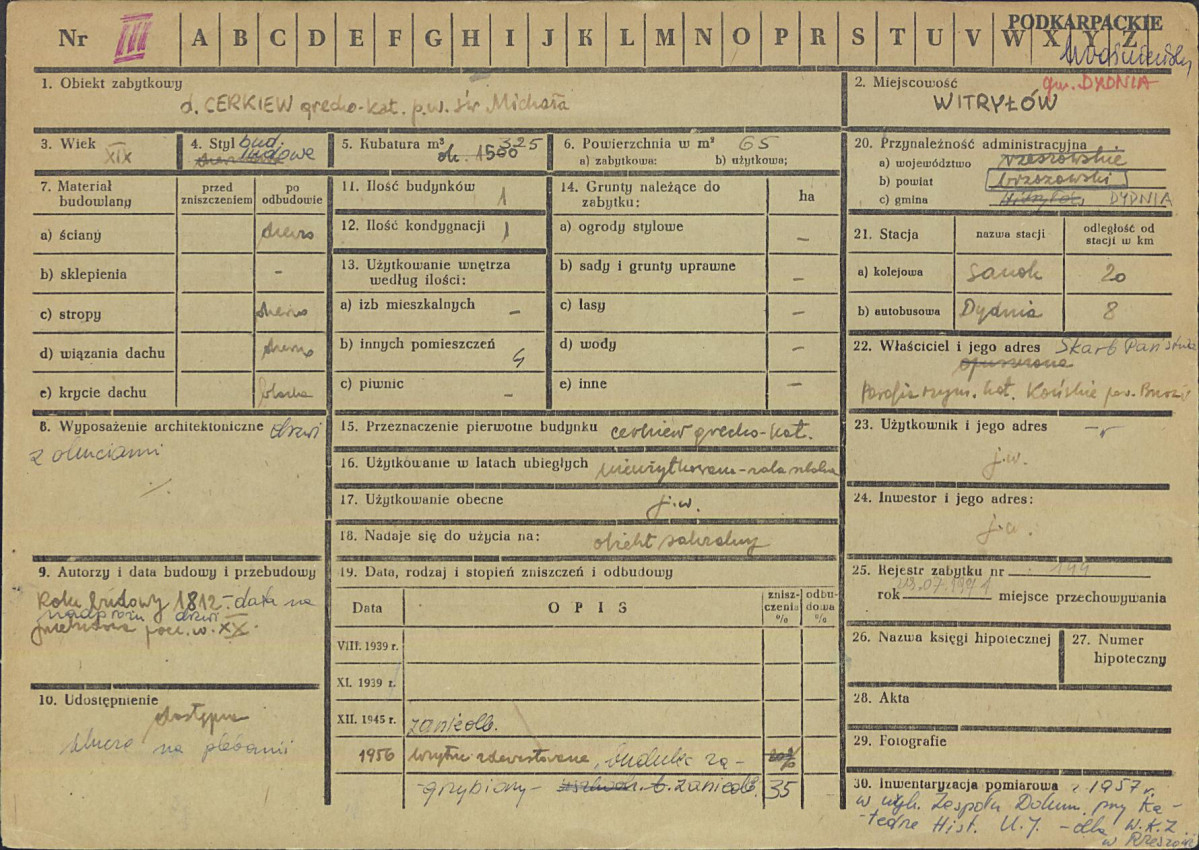 Nr III A B C D E F G H I J K L M N O P R S T U V W X Y Z
PODKARPACKIE
1. Obiekt zabytkowy
d. CERKIEW grecko-kat. p.w. św Michała
2. Miejscowość gm. DYDNIA
WITRYŁÓW
3. Wiek
XIX
4. Styl bud.
ludowe
5. Kubatura m³ 325
ok. 1500
6. Powierzchnia w m² 65
a) zabytkowa: b) użytkowa;
7. Materiał budowlany
przed zniszczeniem
po odbudowie
a) ściany drewno
b) sklepienia -
c) stropy drewno
d) wiązania dachu drewno
e) krycie dachu blacha
8. Wyposażenie architektoniczne drzwi
z okuciami
9. Autorzy i data budowy i przebudowy
Roku budowy 1812 - data na
nadprożu drzwi
pocz. w. XX.
10. Udostępnienie
dostępna
klucz na plebanii
11. Ilość budynków 1
12. Ilość kondygnacji 1
13. Użytkowanie wnętrza
według ilości:
a) izb mieszkalnych -
b) innych pomieszczeń 4
c) piwnic -
14. Grunty należące do
zabytku:
ha
a) ogrody stylowe -
b) sady i grunty uprawne -
c) łasy -
d) wody -
e) inne -
15. Przeznaczenie pierwotne budynku cerkiew grecko-kat.
16. Użytkowanie w latach ubiegłych nieużytkowana - sala szkolna
17. Użytkowanie obecne j.w.
18. Nadaje się do użycia na: obiekt sakralny
19. Data, rodzaj i stopień zniszczeń i odbudowy
Data OPIS zniszczenia % odbudowa %
VIII. 1939 r.
XI. 1939 r.
XII. 1945 r. zaniedb.
1956 wnętrze zdewastowane, budulec za-
-grzybiony - b. zaniedb. 35
20. Przynależność administracyjna
a) województwo rzeszowskie
b) powiat brzozowski
c) gmina Witryłów DYDNIA
21. Stacja
nazwa stacji
odległość od
stacji w km
a) kolejowa Sanok 20
b) autobusowa Dydnia 8
22. Właściciel i jego adres Skarb Państwa
opuszczona
Parafia rzym. kat. Końskie pow. Brzoz
23. Użytkownik i jego adres
j.w.
24. Inwestor i jego adres:
j.w.
25. Rejestr zabytku nr 144
rok 23.07.1971 miejsce przechowywania
26. Nazwa księgi hipotecznej
27. Numer
hipoteczny
28. Akta
29. Fotografie
30. Inwentaryzacja pomiarowa z 1957 r.
w wyk. Zespołu Dokum. przy Ka-
-tedrze Hist. U.J. - dla W.K.Z.
w Rzeszowie